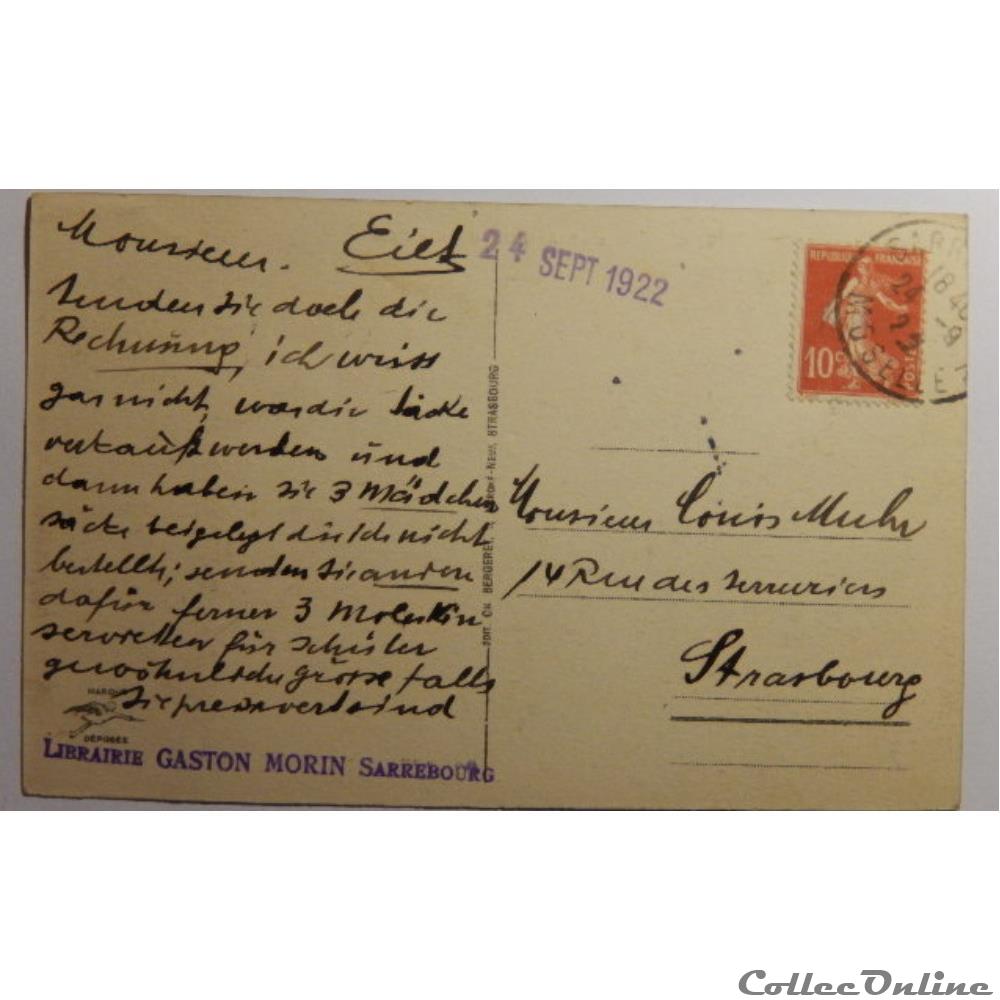 Monsieur. Eilt
24 SEPT 1922
Senden Sie doch die
Rechnung, ich weiss
gar nicht, was die Säcke
verkauft werden und
dann haben Sie 3 Mädchen
säcke beigelegt die ich nicht
bestellt; senden Sie andere
dafür ferner 3 Moleskin
servietten für Schüler
gewöhnliche grösse falls
Sie preiswert sind
MARQUE
DÉPOSÉE
LIBRAIRIE GASTON MORIN SARREBOURG
EDIT. CH. BERGERET, STRASBOURG
REPUBLIQUE FRANÇAISE
10c
POSTES
SARRE
18 40
24 -9
22
MOSELLE
Monsieur Louis Muhr
14 Rue des Serruriers
Strasbourg
CollecOnline